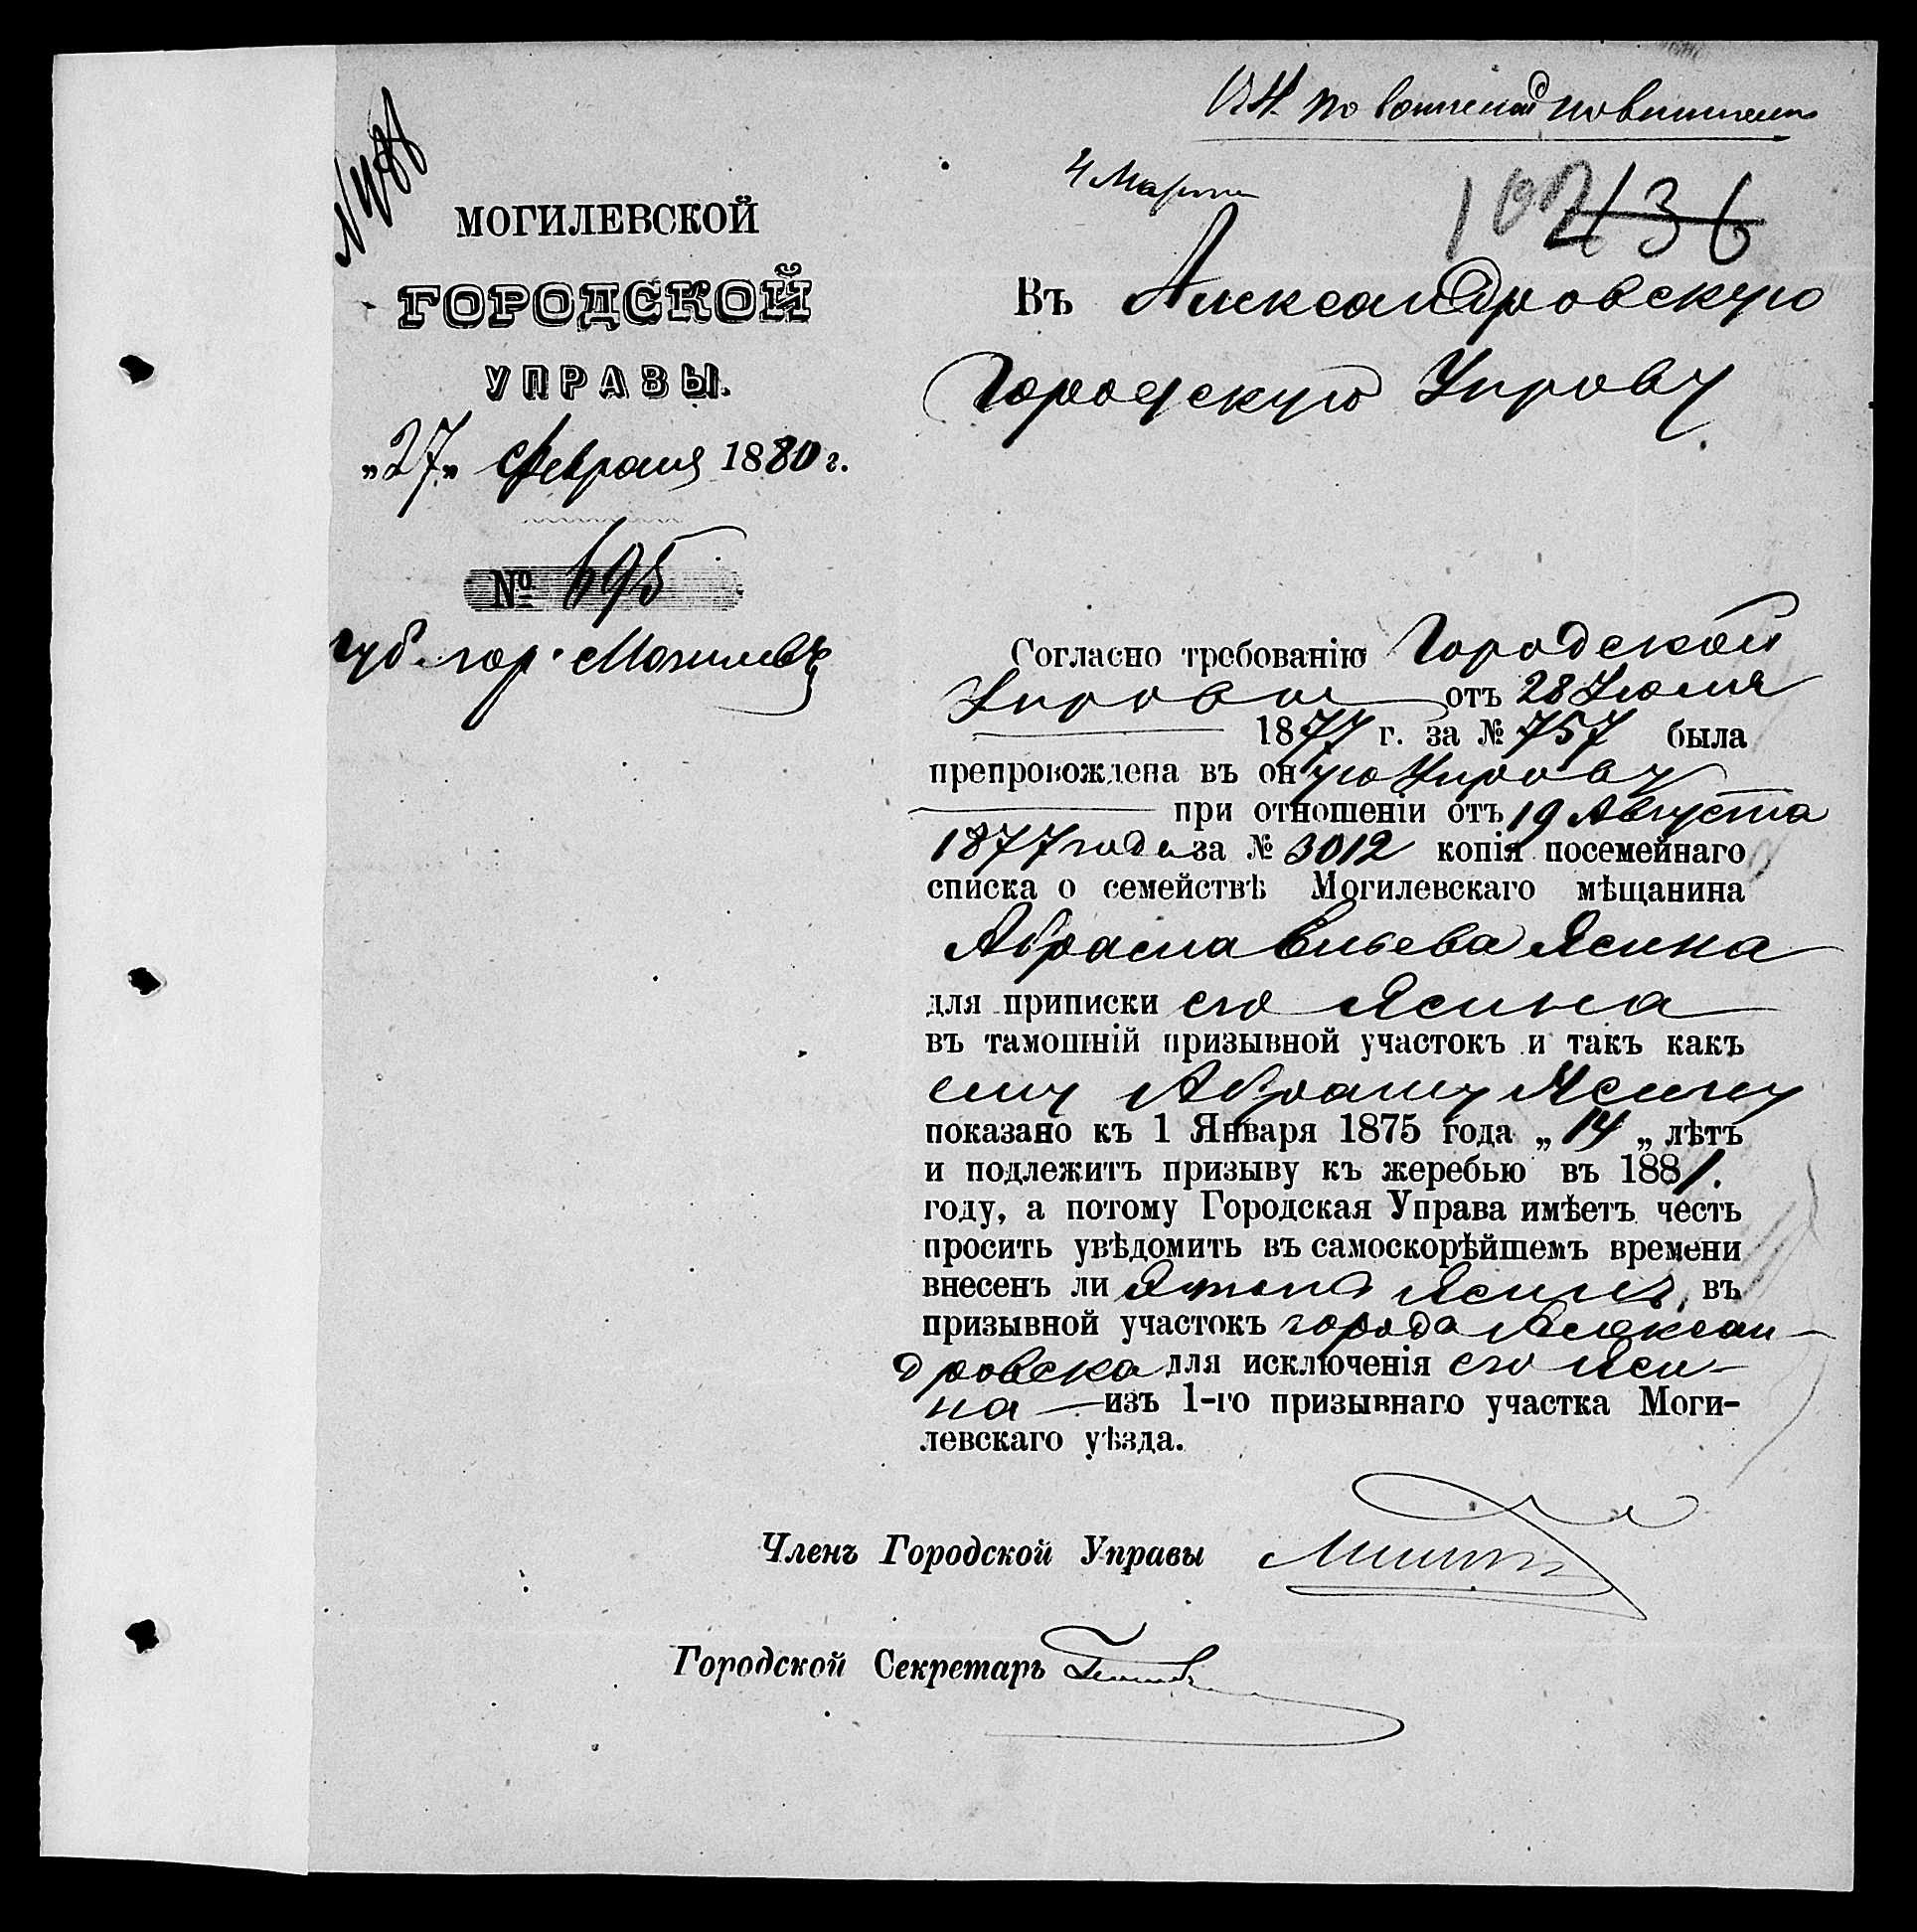 по воинской повинности
4 Марта
136
МОГИЛЕВСКОЙ
ГОРОДСКОЙ
УПРАВЫ.
„27„ Февраля 1880 г.
№ 695
губ. гор. Могилевъ
Въ Александровскую
Городскую Управу.
Согласно требованію Городской
Управы отъ 28 Іюля
1877 г. за № 757 была
препровождена въ оную Управу
при отношеніи отъ 19 Августа
1877 года за № 3012 копія посемейнаго
списка о семействѣ Могилевскаго мѣщанина
Абрама Ясина
для приписки его Ясина
въ тамошній призывной участокъ и такъ какъ
ему Абраму Ясину
показано къ 1 Января 1875 года „14„ лѣтъ
и подлежитъ призыву къ жеребью въ 1881.
году, а потому Городская Управа имѣетъ честь
просить увѣдомить въ самоскорѣйшемъ времени
внесенъ ли Ясинъ, въ
призывной участокъ города Алексан-
дровска для исключенія его Яси-
на — изъ 1-го призывнаго участка Моги-
левскаго уѣзда.
Членъ Городской Управы
Городской Секретарь